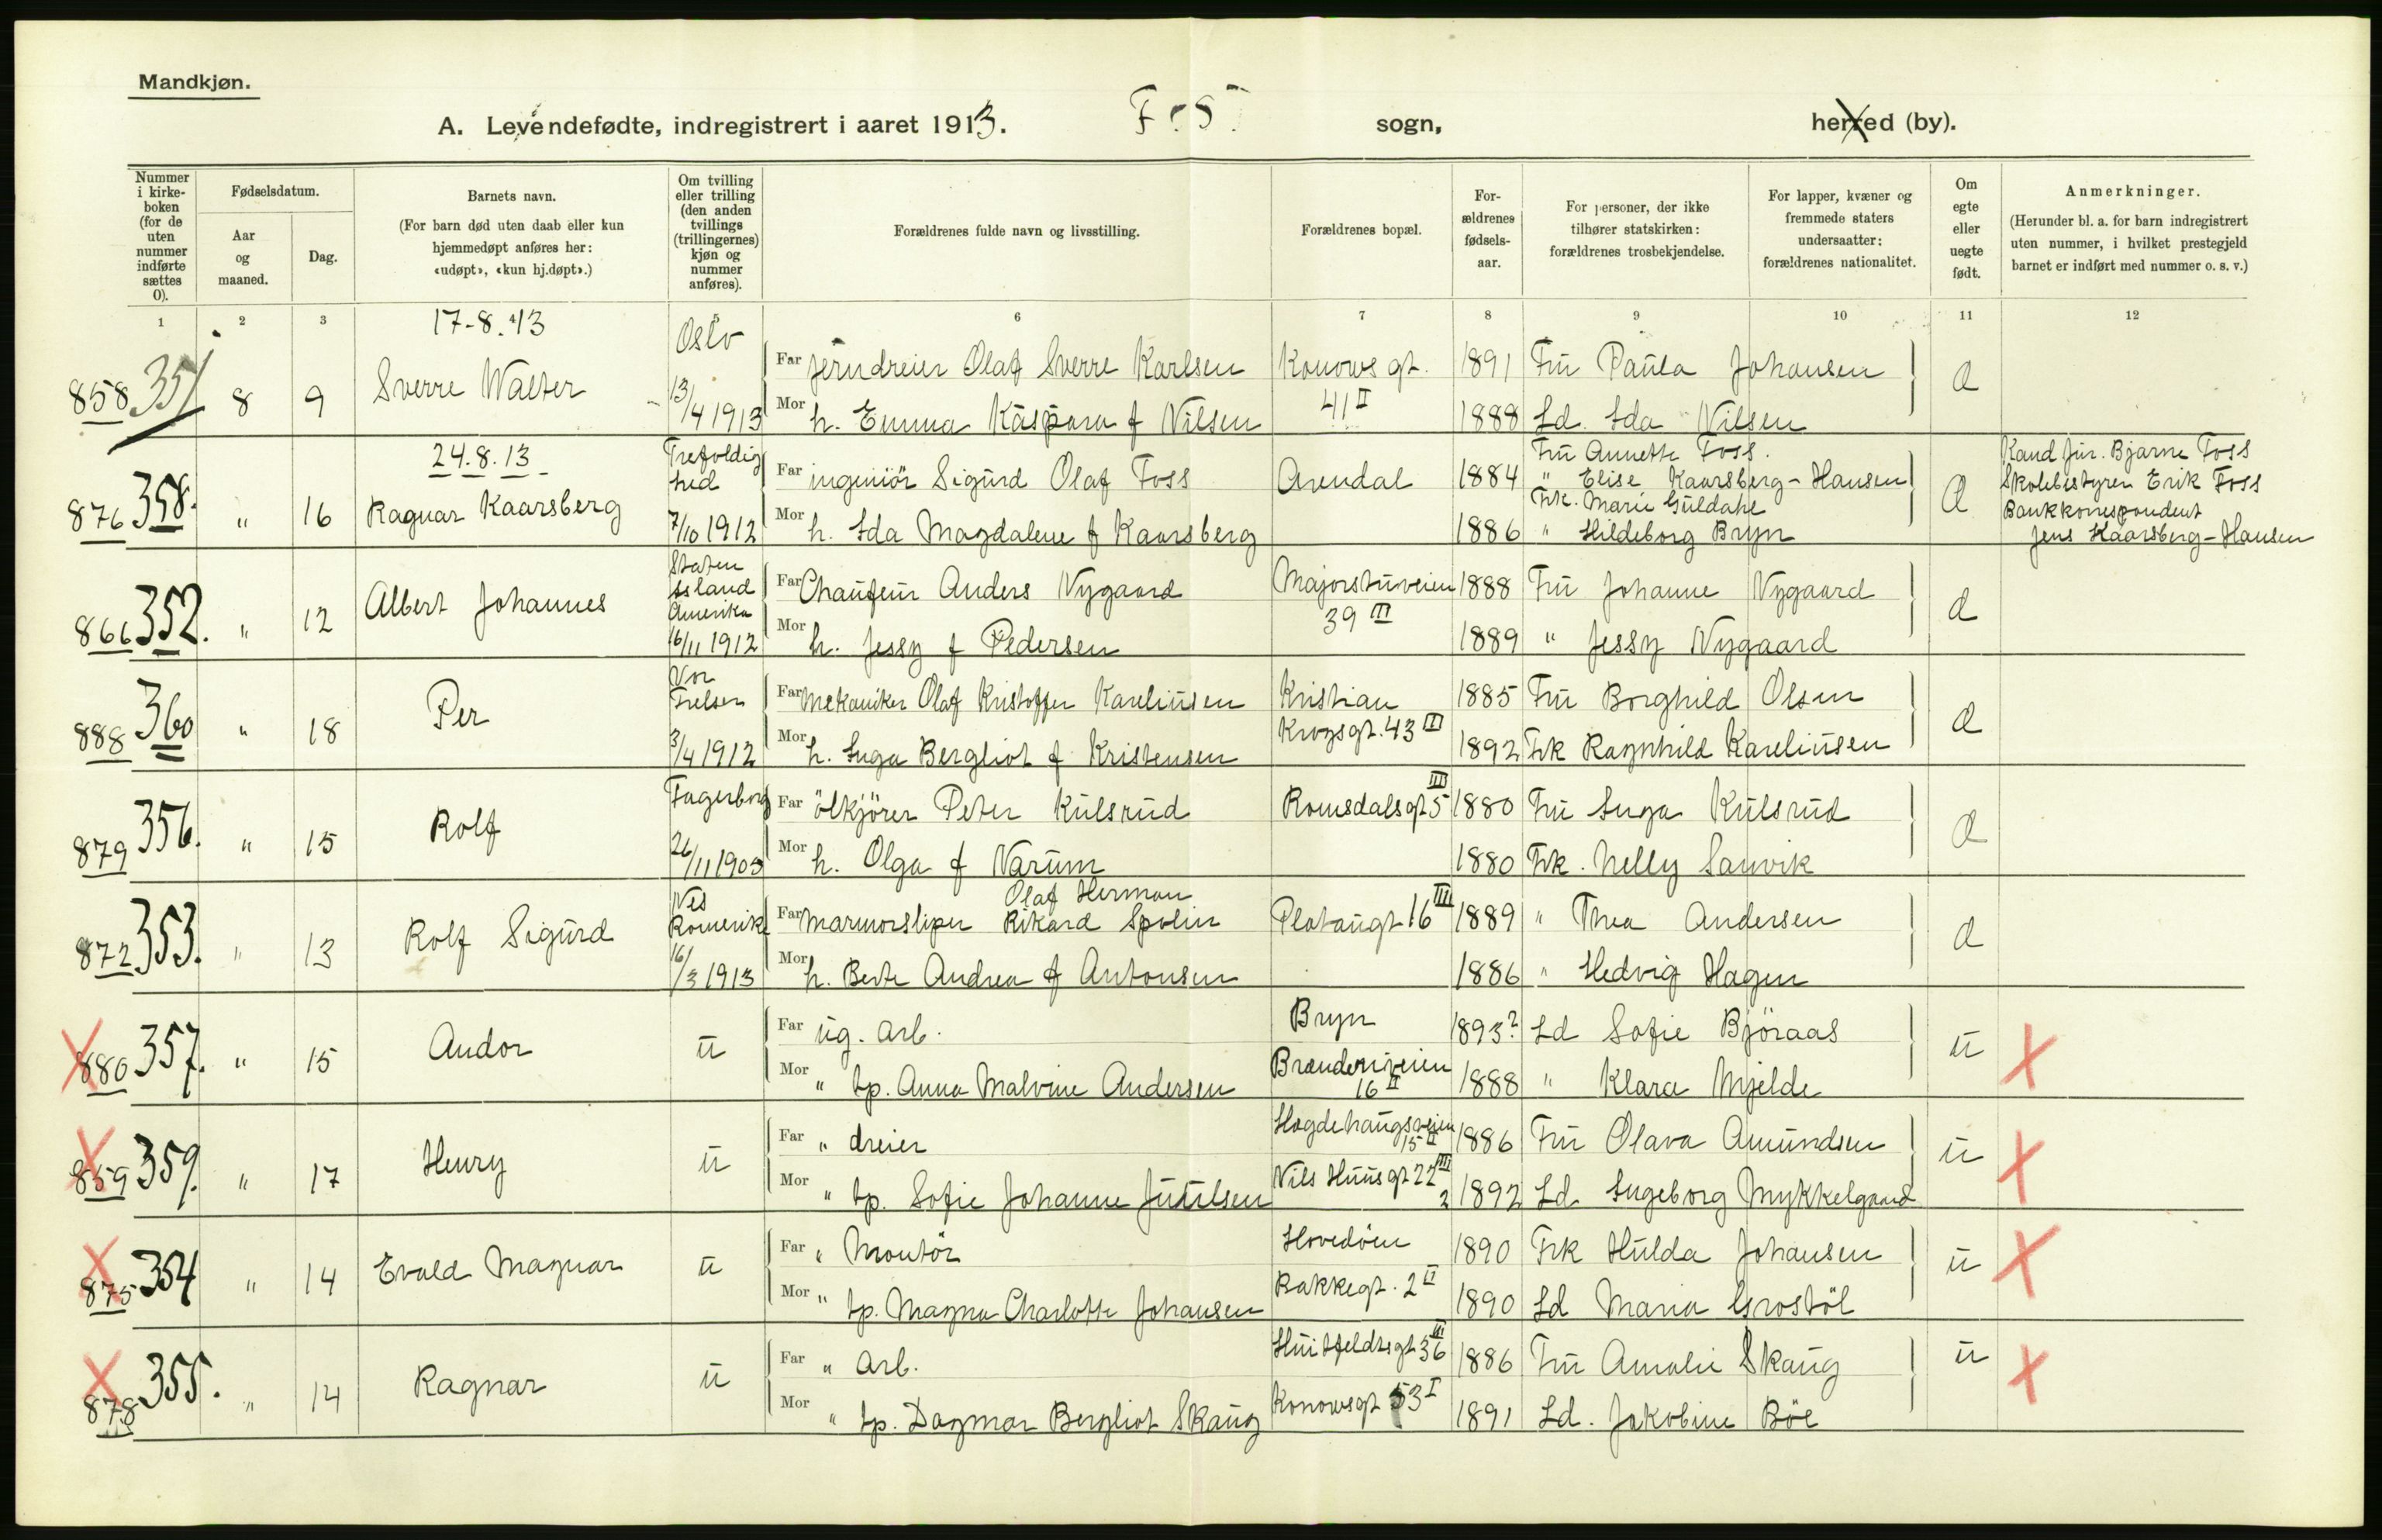 Mandkjøn.
A. Levendefødte, indregistrert i aaret 1913. F. S. sogn, herred (by).
Nummer i kirke-boken (for de uten nummer indførte sættes 0).
Fødselsdatum.
Aar og maaned.
Dag.
Barnets navn.
(For barn død uten daab eller kun hjemmedøpt anføres her: «udøpt», «kun hj.døpt».)
Om tvilling eller trilling (den anden tvillings (trillingernes) kjøn og nummer anføres).
Forældrenes fulde navn og livsstilling.
Forældrenes bopæl.
For-ældrenes fødsels-aar.
For personer, der ikke tilhører statskirken: forældrenes trosbekjendelse.
For lapper, kvæner og fremmede staters undersaatter: forældrenes nationalitet.
Om egte eller uegte født.
Anmerkninger.
(Herunder bl. a. for barn indregistrert uten nummer, i hvilket prestegjeld barnet er indført med nummer o. s. v.)
1 2 3 4 5 6 7 8 9 10 11 12
17-8.13
Oslo
858 351 8 9 Sverre Walter 13/4 1913
Far jerndreier Olaf Sverre Karlsen Konows gt. 1891 Fru Paula Johansen
Mor h. Emma Kaspara f Nilsen 41 II 1888 Ld. Ida Nilsen
24.8.13
Trefoldig hed
876 358. " 16 Ragnar Kaarsberg 7/10 1912
Far ingeniör Sigurd Olaf Foss Arendal 1884 Fru Annette Foss.
" Elise Kaarsberg-Hansen
Frk. Marie Guldahl
Mor h. Ida Magdalene f Kaarsberg 1886 " Hildeborg Bryn
Kand jur. Bjarne Foss
Skolebestyrer Erik Foss
Bankkorrespondent
Jens Kaarsberg-Hansen
866 352. " 12 Albert Johannes
Staten Island Amerika 16/11 1912
Far Chaufeur Anders Nygaard Majorstuveien 1888 Fru Johanne Nygaard
Mor h. Jessy f Pedersen 39 III 1889 " Jessy Nygaard
888 360 " 18 Per
Vor Frelser 3/4 1912
Far Mekaniker Olaf Kristoffer Kareliussen Kristian 1885 Fru Borghild Olsen
Mor h. Inga Bergliot f Kristensen Krogsgt. 43 II 1892 Frk Ragnhild Kareliussen
879 356. " 15 Rolf
Fagerborg 26/11 1905
Far ölkjörer Peter Kulsrud Romsdalsgt 5 III 1880 Fru Inga Kulsrud
Mor h. Olga f Narum 1880 Frk. Nelly Sanvik
872 353. " 13 Rolf Sigurd
Nes Romerike 16/3 1913
Olaf Herman
Far Marmorsliper Rikard Spolin Platougt 16 III 1889 " Thea Andersen
Mor h. Berte Andrea f Antonsen 1886 " Hedvig Hagen
880 357. " 15 Andor u
Far ug. arb. Bryn 1893? Ld Sofie Björaas u
Mor " tp. Anna Malvine Andersen Brænderiveien 16 II 1888 " Klara Mjelde
859 359. " 17 Henry u
Far " dreier Hegdehaugsveien 15 II 1886 Fru Olava Amundsen u
Mor " tp. Sofie Johanne Juulsen Nils Huus gt 22 III 1892 Ld. Ingeborg Mykkelgaard
875 354 " 14 Evald Magnar u
Far " Montör Hovedöen 1890 Frk Hulda Johansen u
Mor " tp. Magna Charlotte Johansen Bakkegt. 2 II 1890 Ld Maria Grostöl
878 355. " 14 Ragnar u
Far " Arb. Huitfeldtsgt 36 III 1886 Fru Amalie Skaug u
Mor " tp. Dagmar Bergliot Skaug Konowsgt 53 I 1891 Ld. Jakobine Böe